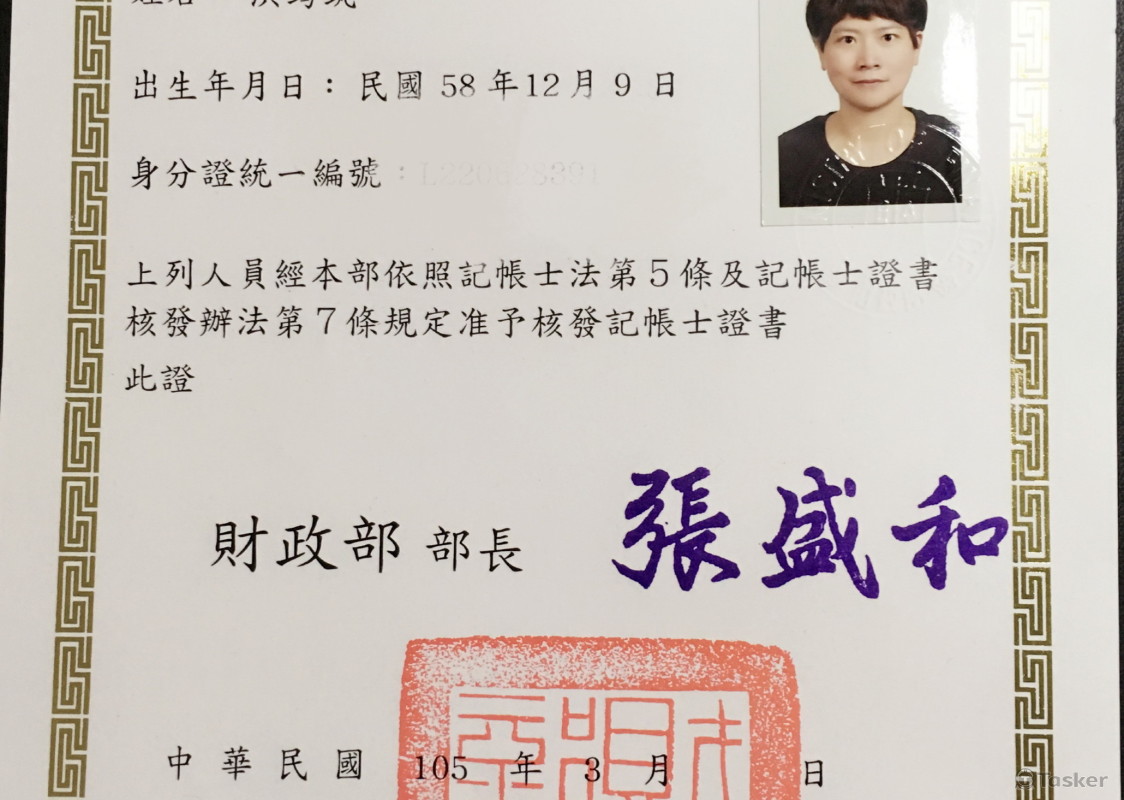 出生年月日：民國 58 年 12 月 9 日
身分證統一編號：
上列人員經本部依照記帳士法第5條及記帳士證書
核發辦法第7條規定准予核發記帳士證書
此證
財政部 部長 張盛和
中華民國 105 年 3 月 日
Tasker